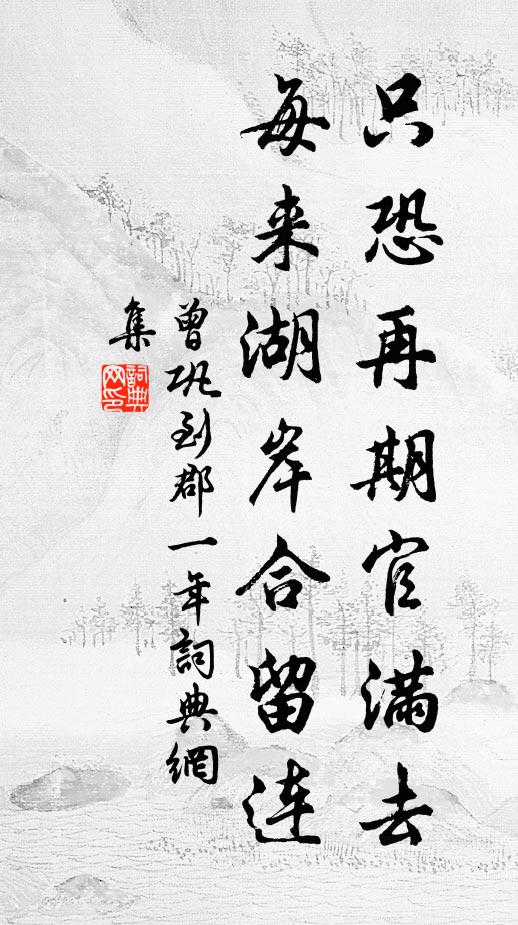 只恐再期官满去
每来湖岸合留连
曾巩到郡一年詞典網
集
詞典
网印